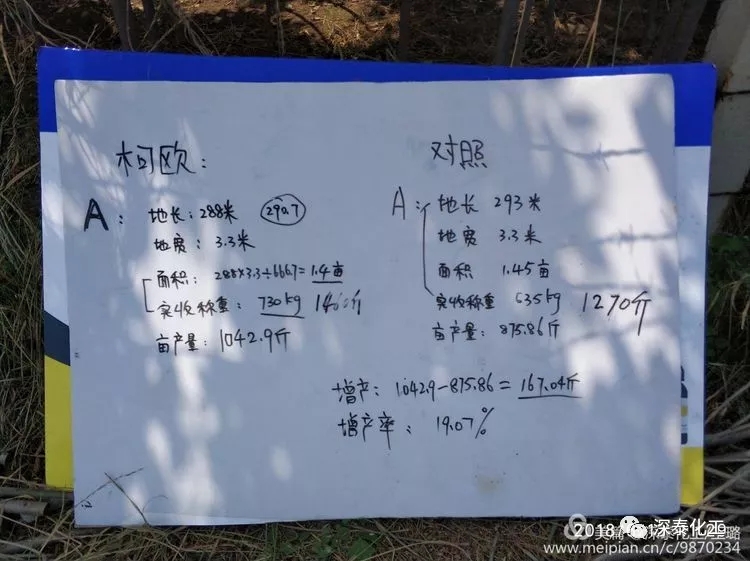 柯欧:
A: 地长:288米 290.7
地宽:3.3米
面积:288×3.3÷666.7=1.4亩
实收称重:730kg 1460斤
亩产量:1042.9斤
对照
A: 地长 293米
地宽 3.3米
面积 1.45亩
实收称重 635kg 1270斤
亩产量:875.86斤
增产:1042.9-875.86=167.04斤
增产率:19.07%
2018
深泰化工
www.meipian.cn/c/9870234